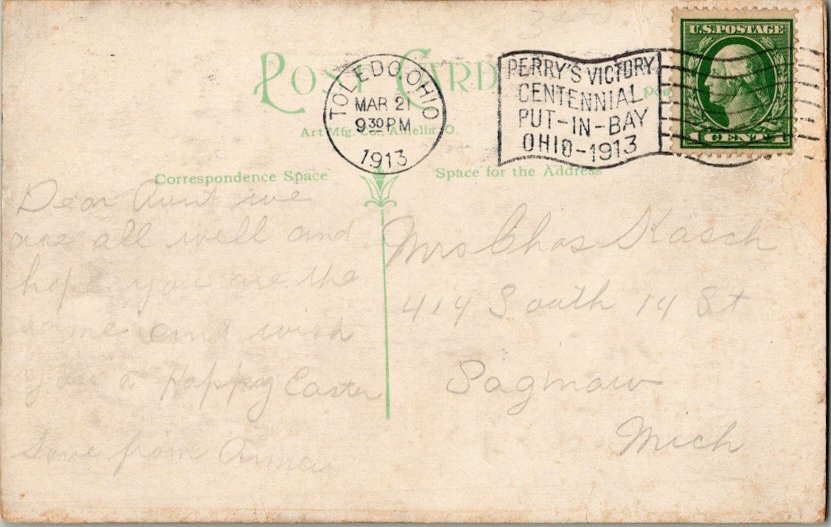 POST CARD
TOLEDO, OHIO
MAR 21
9 30 PM
1913
PERRY'S VICTORY
CENTENNIAL
PUT-IN-BAY
OHIO-1913
U.S. POSTAGE
1 CENT 1
Art Mfg. Co., Amelia, O.
Correspondence Space
Space for the Address
Dear Aunt we
are all well and
hope you are the
same and wish
you a Happy Easter
Love from Anna
Mrs Chas Kasch
414 South 14 St
Saginaw
Mich